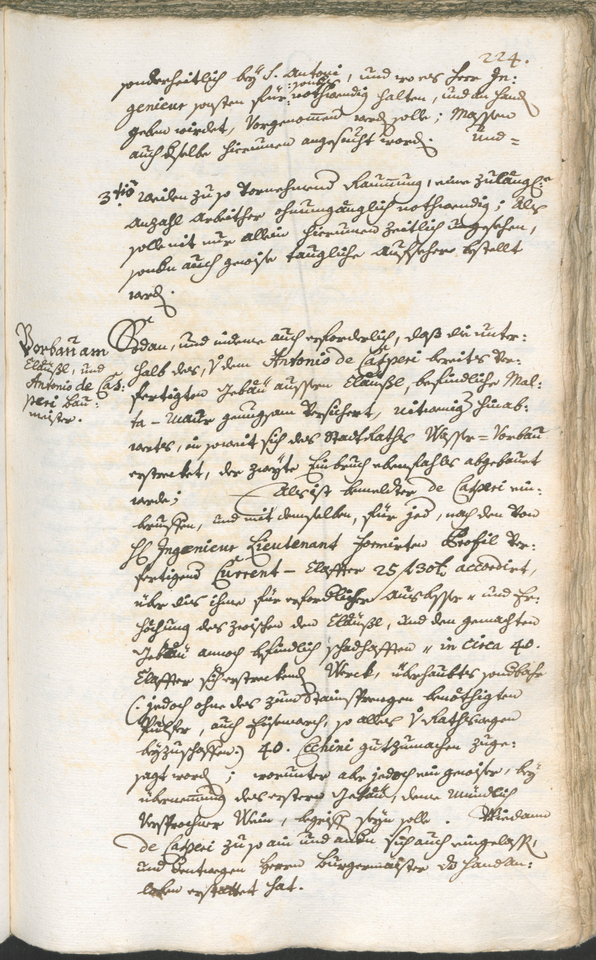 224.
sonderheitlich bey S. Antoni, und wo es Herr In:
genieur sonsten für nothwendig halten, und an Hand
geben wirdet, Vorgenommen werd solle; Massen
auch dselbe hierumen angesucht word. Und=
3tiò Weilen zu so Vornehmend Raumung, eine zulängl:e
Anzahl Arbeither ohnumgänglich nothwendig; Als
solle nit nur allein hierumen zeitlich umgesehen,
sondn auch gewise taugliche Aufseher bestellt
werd.
Vorbau am
Eläusl, und
Antonio de Cas:
peri bau:
meister.
Sodan, und indeme auch erforderlich, daß die unter:
halb des, v dem Antonio de Casperi bereits Ver:
fertigten Gebäu aussen Eläusl, befindliche Mal:
ta-Maur genugsam Versichert, hinab:
werts, in soweit sich des Stadt Raths Wasser=Vorbau
erstrecket, der zweyte Einbruch ebenfahls abgebauet
werde; Als ist bemeldter de Casperi ein:
beruffen, und mit demselben, für jed, nach den Von
H Ingenieur Lieutenant formirten Profil Ver:
fertigend Current-Claffter 25 f 30 k accordirt,
über dis ihme für erfordliche Ausbesser= und Er:
höchung des zwischen den Eläusl, und den gemachten
Gebäu annoch befindlich schadhafften in circa 40.
Claffter sich erstreckend Werck, überhaubts
(: jedoch ohne des zum Stainsprengen benöthigten
Pulfer, auch Eisenwerch, so alles v Rathswegen
beyzuschaffen :) 40. Cechini gutzumachen zuge:
sagt word; worunter aber jedoch ein gewiser, bey
übernemung des erstern Gebäu, deme mündlich
Versprochner Wein, begriffen seyn solle. Wie dann
de Casperi zu so ain und andn sich auch eingelass,
und dentwegen Herrn Burgermaister d Handan:
loben erstattet hat.